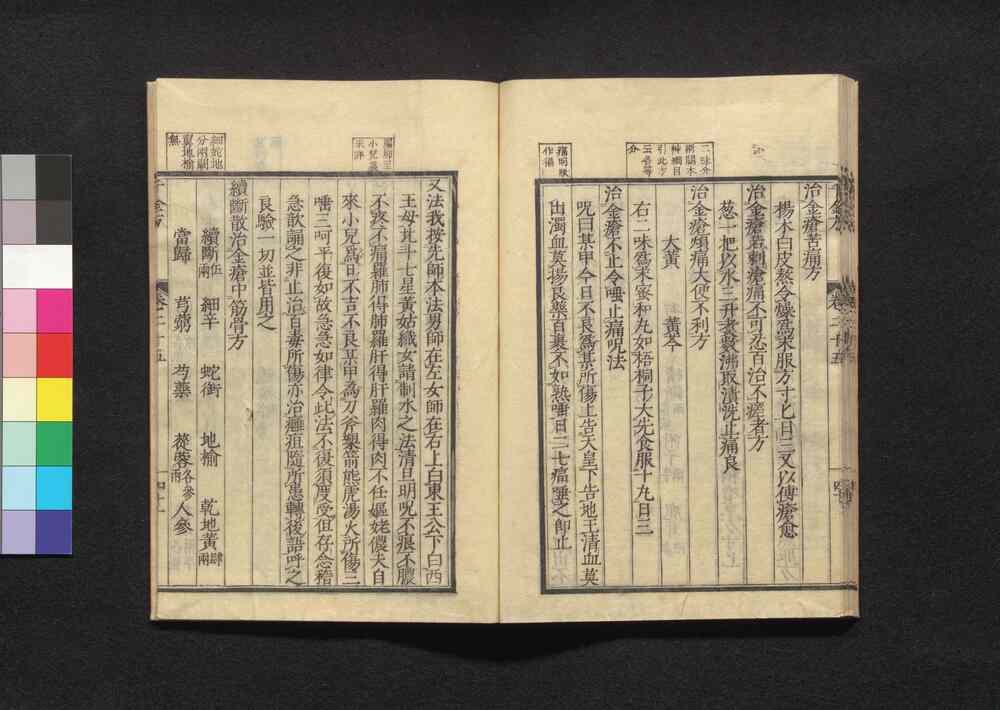 治金瘡苦痛方
楊木白皮熬令燥爲末服方寸匕日三又以傅瘡愈
治金瘡若刺瘡痛不可忍百治不瘥者方
葱一把以水三升煮數沸取漬洗止痛良
治金瘡煩痛大便不利方
大黄 黄芩
右二味爲末蜜和丸如梧桐子大先食服十丸日三
治金瘡不止令唾止痛呪法
呪曰某甲今日不良爲某所傷上告天皇下告地王清血莫
出濁血莫揚良藥百裹不如熟唾日二七痛唾之即止
又法我按先師本法男師在左女師在右上白東王公下曰西
王母北斗七星黄姑織女請制水之法清旦明呪不痕不膿
不疼不痛羅肺得肺羅肝得肝羅肉得肉不任嫗姥儂夫自
來小兒爲旦不吉不良某甲為刀斧槊箭熊虎湯火所傷三
唾三呵平復如故急急如律令此法不復須度受但存念稽
急歆誦之非止治百毒所傷亦治癰疽隨所患轉後語呼之
良驗一切並皆用之
續斷散治金瘡中筋骨方
續斷伍兩 細辛 蛇銜 地榆 乾地黄肆兩
當歸 芎藭 芍藥 蓯蓉各參兩 人參
千金方 卷二十五